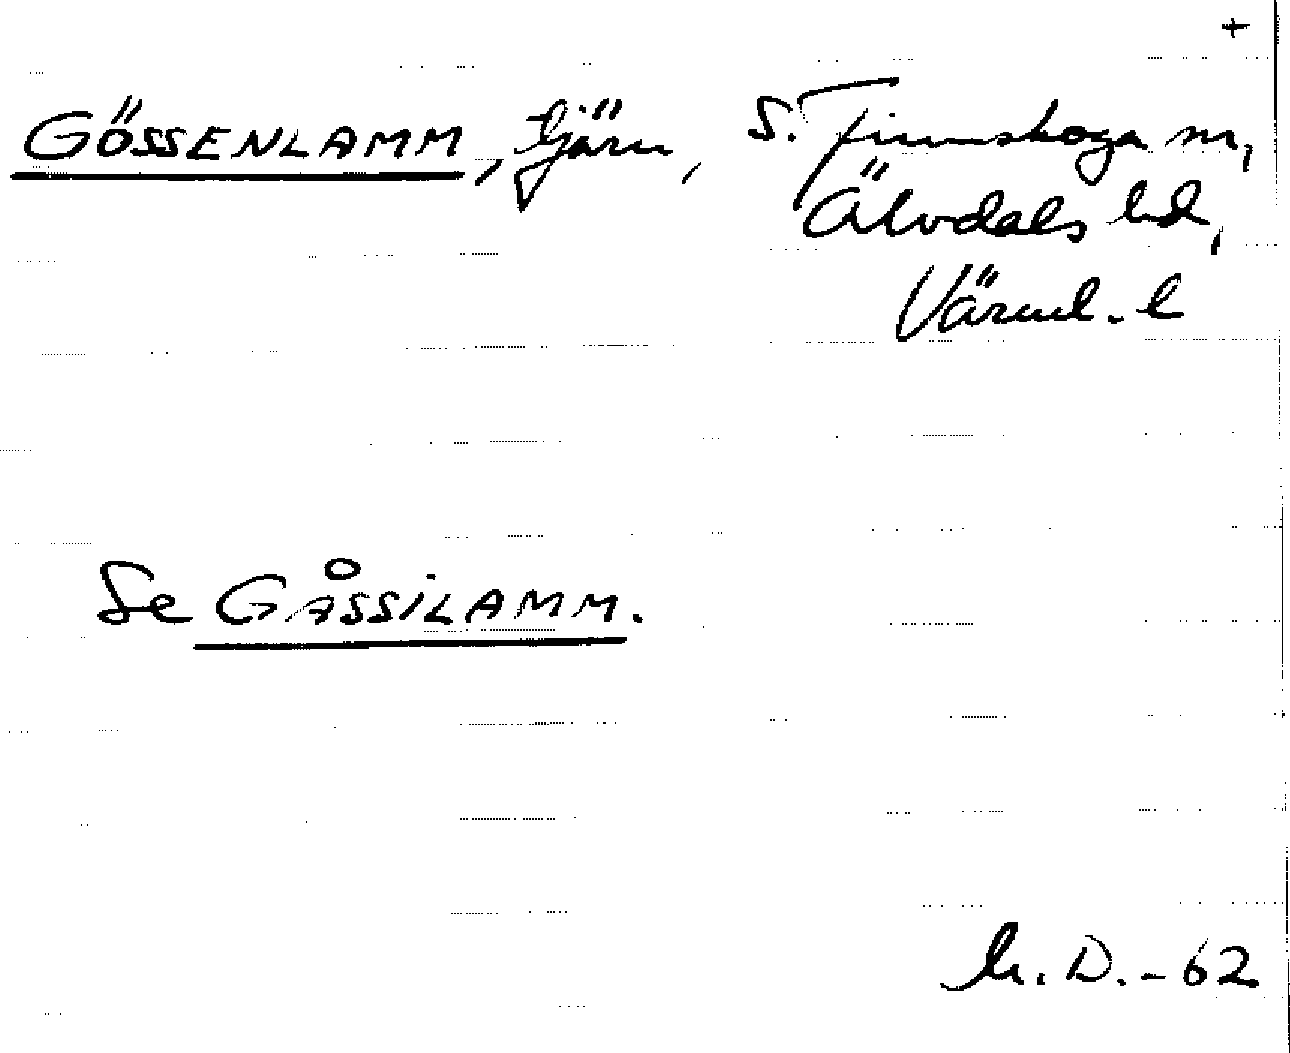 +
GÖSSENLAMM, tjärn, S. Finnskoga sn,
Älvdals hd,
Värml. l
Se GÅSSILAMM.
M. D. - 62